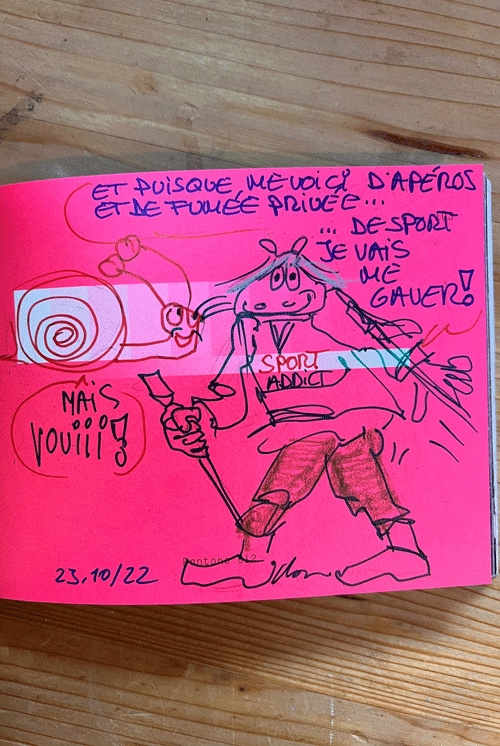 ET PUISQUE ME VOICI D'APÉROS
ET DE FUMÉE PRIVÉE...
... DE SPORT
JE VAIS
ME
GAVER!
SPORT
ADDICT
MAIS
VOUIII!
23.10/22